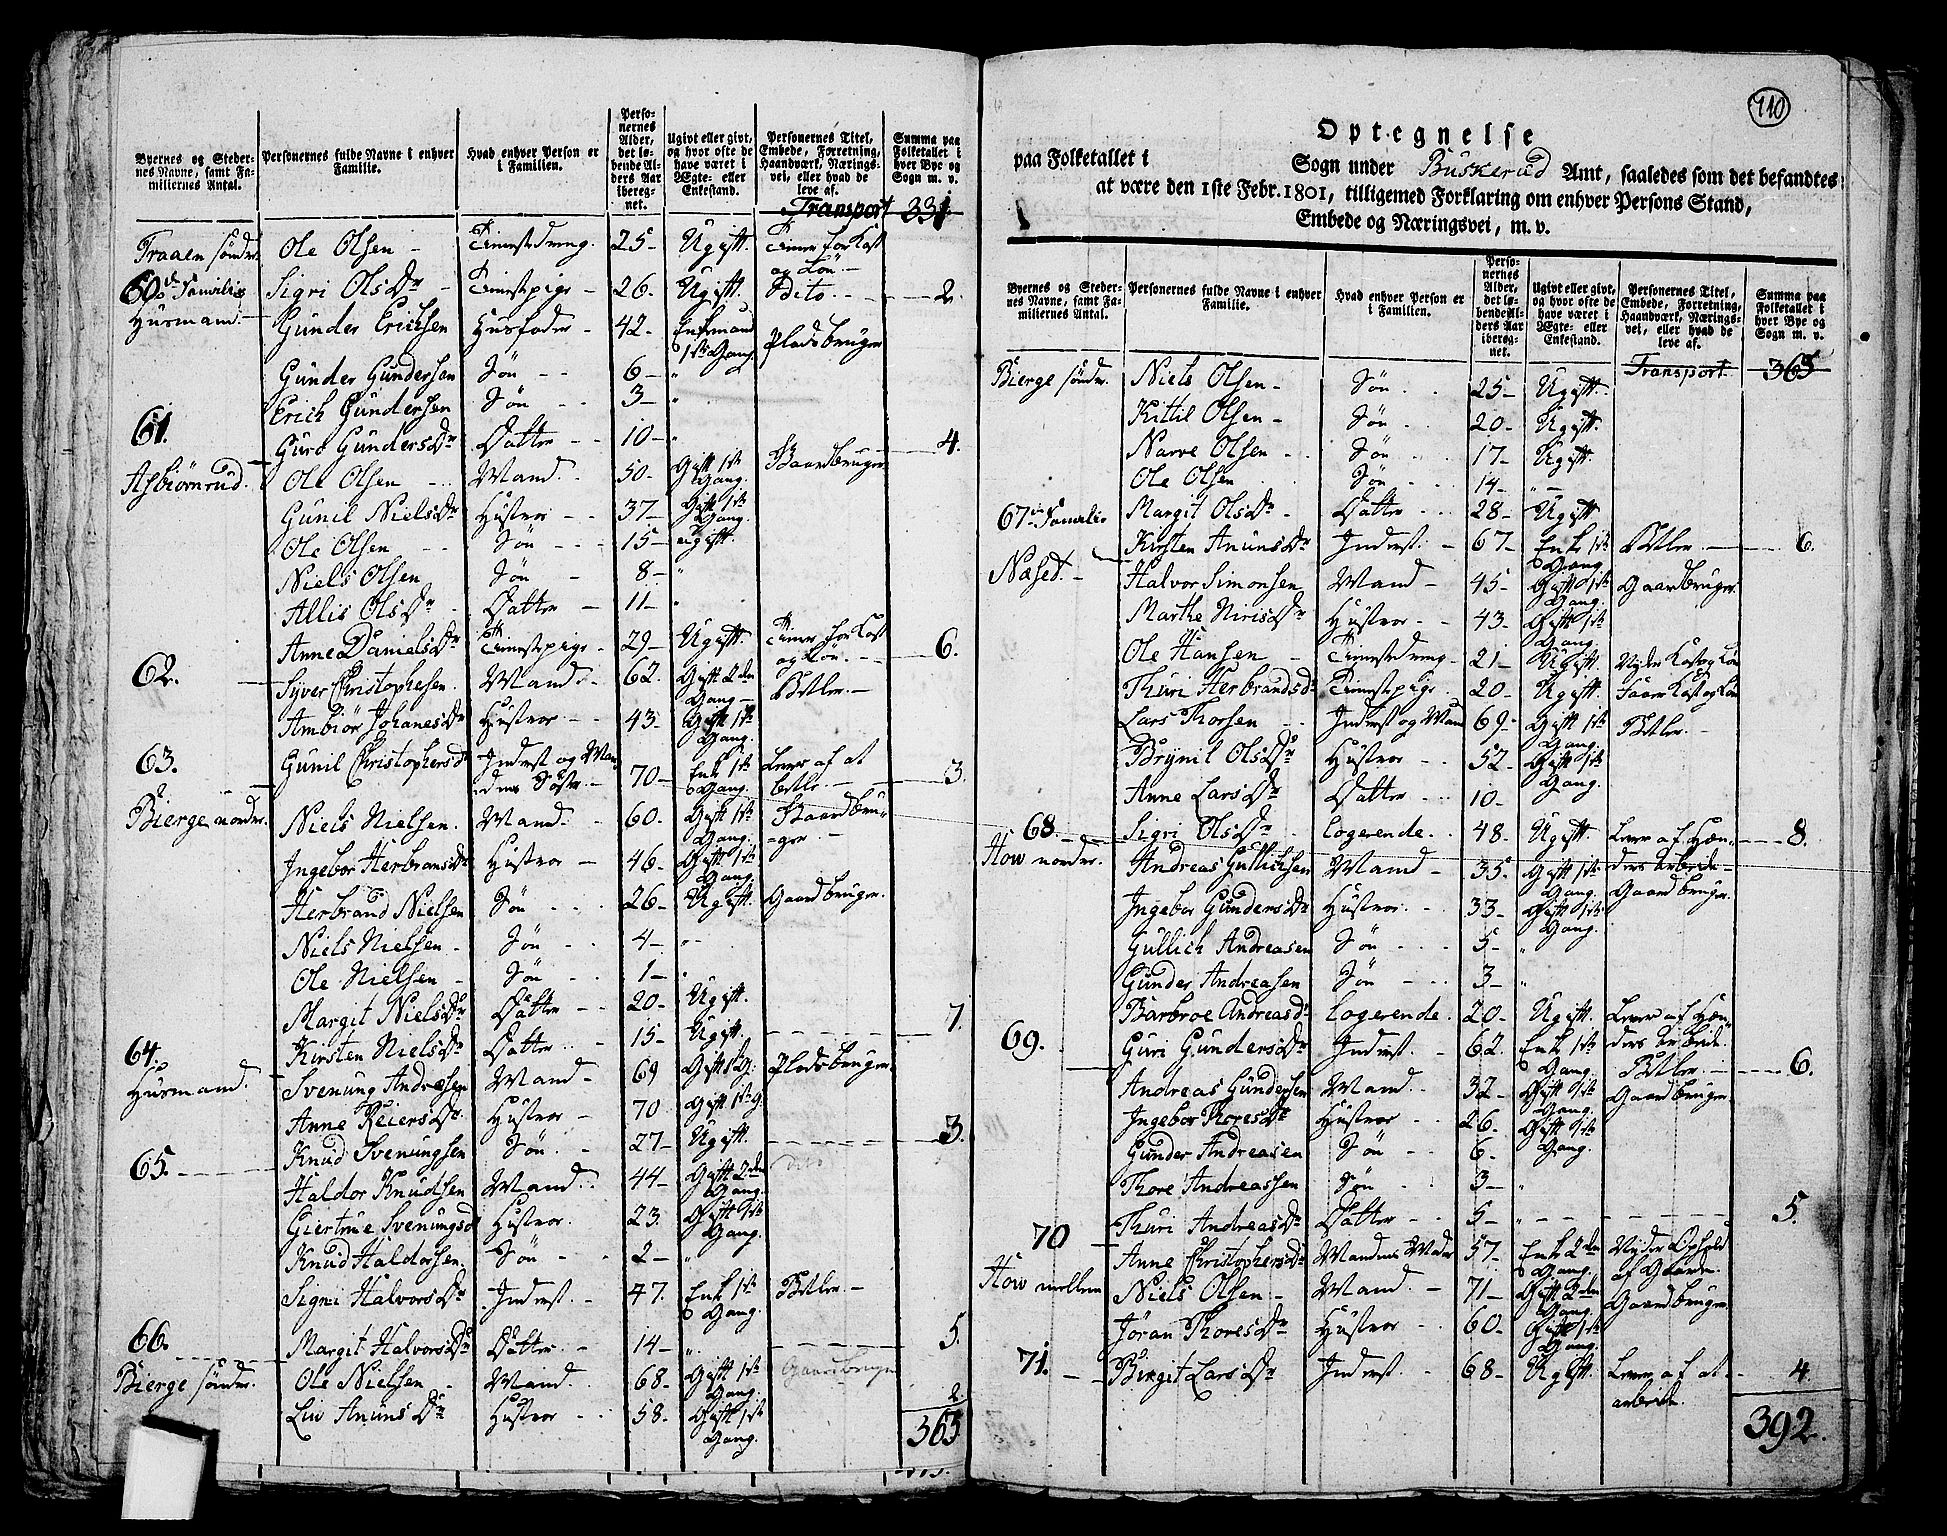 Byernes og Steder-
nes Navne, samt Fa-
miliernes Antal.
Personernes fulde Navne i enhver
Familie.
Hvad enhver Person er
i Familien.
Perso-
nernes
Alder,
det lø-
bende Al-
ders Aar
ibereg-
net.
Ugivt eller givt,
og hvor ofte de
have været i
Ægte- eller
Enkestand.
Personernes Titel,
Embede, Forretning,
Haandværk, Nærings-
vei, eller hvad de
leve af.
Summa paa
Folketallet i
hver Bye og
Sogn m. v.
Transport 331
Traaen søndr. Ole Olsen - Tienestedreng. 25- Ugift. Tiener for Kost
og Løn. -
60de Familie Sigri OlsDr Tienestpige - 26. Ugift. Dito. - - - 2.
Husmand. Gunder Erichsen Husfader - 42- Enkemand Pladsbruger
1ste Gang.
Gunder Gundersen Søn - - 6- "
Erich Gundersen Søn - - 3- "
61. Guro GundersDr Datter - - 10- " 4.
Asbiørnrud. Ole Olsen - Mand. - 50- Gift 1ste Gaardbruger
Gang.
Gunil NielsDr Hustroe - - 37- Gift 1ste
Gang.
Ole Olsen - - Søn - - - 15- ugift.
Niels Olsen Søn - 8- "
Allis OlsDr - Datter - 11- "
Anne DanielsDr Tienestpige - 29- Ugift. Tiener for Kost 6.
og Løn. - -
62. Syver Christophersen. Mand - 62. Gift 2den Betler. -
Gang -
Ambiør JohanesDr Hustroe - - 43- Gift 1ste
Gang.
63. Gunil ChristophersD Inderst og Man- 70- Enke 1ste Lever af at 3.
dens Søster - Gang. betle. -
Bierge nordre. Niels Nielsen. Mand. - 60. Gift 1ste Gaardbru-
Gang. ger
Ingebor HerbransDr Hustroe - 46- Gift 1ste
Gang.
Herbrand Nielsen Søn - - - 26- Ugift. Gaardbruger.
Niels Nielsen - Søn - - 4- "
Ole Nielsen - Søn - - 1- "
Margit NielsDr Datter - - 20- Ugift.
Kirsten NielsDr Datter - - 15- Ugift. 7.
64. Svenung Andræsen Mand - 69 Gift 1ste G: Pladsbruger.
Husmand. Anne ReiersDr. Hustroe - 70 Gift 1ste G.
Knud Svenungsen Søn. - 27- Ugift. 3.
65. Haldor Knudsen Mand. - 44- Gift 2den Dito
Gang.
Giertrue Svenungsd Hustroe. 23. Gift 1ste
Gang.
Knud Haldorsen. Søn - - 2- "
Signi HalvorsDr Inderst. - 47. Enke 1ste Betler. -
Gang.
Margit HalvorsDr Datter. - 14- " 5.
66. Ole Nielsen - Mand. 68- Gift 1ste Gaardbruger
Gang.
Bierge søndre. Liv AnunsDr Hustroe - - 58. Gift 1ste 2.
Gang.
365
110
Optegnelse
paa Folketallet i Sogn under Buskerud Amt, saaledes som det befandtes
at være den 1ste Febr. 1801, tilligemed Forklaring om enhver Persons Stand,
Embede og Næringsvei, m. v.
Byernes og Steder-
nes Navne, samt Fa-
miliernes Antal.
Personernes fulde Navne i enhver
Familie.
Hvad enhver Person er
i Familien.
Perso-
nernes
Alder,
det lø-
bende Al-
ders Aar
ibereg-
net.
Ugivt eller givt,
og hvor ofte de
have været i
Ægte- eller
Enkestand.
Personernes Titel,
Embede, Forretning,
Haandværk, Nærings-
vei, eller hvad de
leve af.
Summa paa
Folketallet i
hver Bye og
Sogn m. v.
Transport 365
Bierge søndr. Niels Olsen - Søn - - 25- Ugift.
Kittil Olsen - Søn - - 20- Ugift.
Narve Olsen - Søn - - 17- Ugift.
Ole Olsen Søn - - 14- "
Margit OlsDr - Datter - - 28- Ugift
67de Familie Kirsten AnunsDr Inderst. - 67- Enke 1ste Betler. - 6.
Gang.
Næset. - Halvor Simonsen Mand - 45- Gift 1ste Gaardbruger.
Gang.
Marthe NirisDr Hustroe - - 43. Gift 1ste
Gang
Ole Hansen - Tienestedreng - 21- Ugift. Nyder Kost og Løn
Thuri HerbrandsDr Tienestpige - 20- Ugift. Faaer Kost og Løn
Lars Thorsen - - Inderst og Mand 69- Gift 1ste Betler. -
Gang.
Brynil OlsDr Hustroe - - 52- Gift 1ste
Gang.
Anne LarsDr Datter - - 10-
68. Sigri OlsDr - logerende. - 48. Ugift. Lever af Hæn- 8.
ders Arbeide -
How nordre. Andreas Gullichsen Mand - 35- Gift 1ste Gaardbruger.
Gang.
Ingebor GundersDr Hustroe. - 33- Gift 1ste
Gang.
Gullich Andreasen Søn - - 5- "
Gunder Andreasen Søn - - 3- "
Barbroe Andreasd logerende. 20- Ugift. Lever af Hæn-
ders Arbeide.
69. Guri GundersDr Inderst. - 62. Enke 1ste Betler. - 6.
Gang.
Andreas Gundersen Mand. - 32- Gift 1ste Gaardbruger
Gang.
Ingebor ThoresDr Hustroe - - 26. Gift 1ste
Gang.
Gunder Andreasen Søn - - 6-
Thore Andreassen Søn - - 3- "
Thuri AndreasDr Datter - - 5- " 5.
70 Anne ChristophersDr Mandens Moder 57- Enke 2den Nyder Ophold
Gang. af Gaarden.
How mellem Niels Olsen - Mand. - 71- Gift 2den Gaardbruger
Gang.
Jøran ThoresDr Hustroe - - 60- Gift 1ste
Gang.
71. Birgit LarsDr Inderst. - 68- Ugift. Lever af at 4.
arbeide.
392.